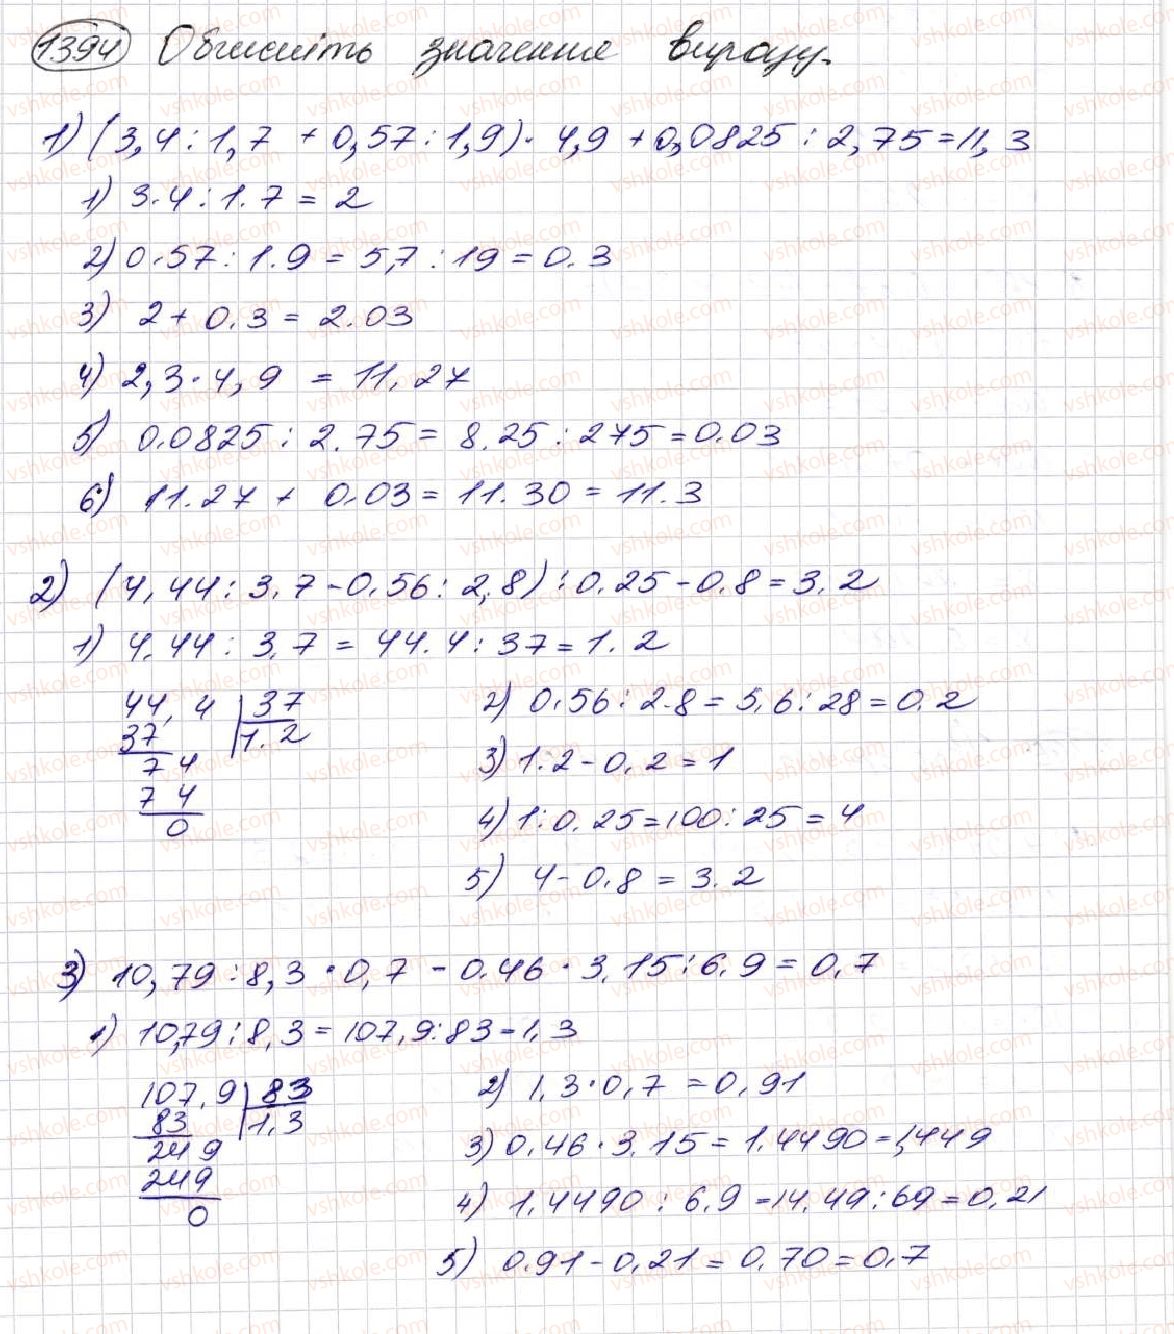 1394 Обчисліть значення виразу.
1) (3,4 : 1,7 + 0,57 : 1,9) · 4,9 + 0,0825 : 2,75 = 11,3
1) 3.4 : 1.7 = 2
2) 0.57 : 1.9 = 5,7 : 19 = 0.3
3) 2 + 0.3 = 2.03
4) 2,3 · 4,9 = 11.27
5) 0.0825 : 2.75 = 8.25 : 275 = 0.03
6) 11.27 + 0.03 = 11.30 = 11.3
2) (4.44 : 3.7 - 0.56 : 2,8) : 0.25 - 0.8 = 3.2
1) 4.44 : 3.7 = 44.4 : 37 = 1.2
44,4 37
37 1.2
74
74
0
2) 0.56 : 2.8 = 5.6 : 28 = 0.2
3) 1.2 - 0.2 = 1
4) 1 : 0.25 = 100 : 25 = 4
5) 4 - 0.8 = 3.2
3) 10,79 : 8,3 · 0,7 - 0.46 · 3.15 : 6.9 = 0,7
1) 10,79 : 8,3 = 107,9 : 83 = 1,3
107,9 83
83 1,3
249
249
0
2) 1,3 · 0,7 = 0,91
3) 0.46 · 3.15 = 1.4490 = 1,449
4) 1.4490 : 6.9 = 14.49 : 69 = 0,21
5) 0.91 - 0,21 = 0.70 = 0.7